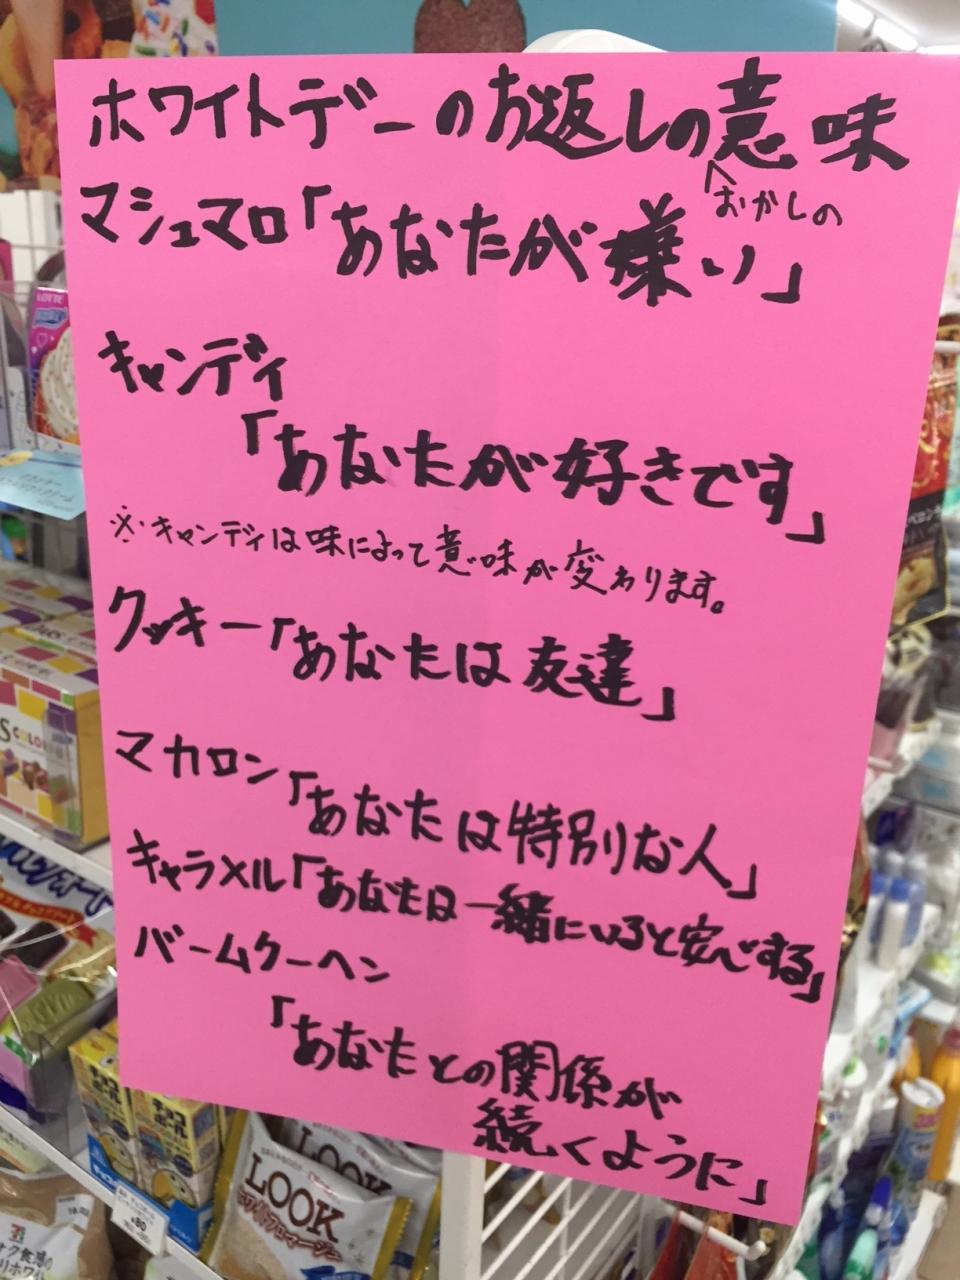 ホワイトデーのお返しの意味
おかしの
マシュマロ「あなたが嫌い」
キャンディ
「あなたが好きです」
※キャンディは味によって意味が変わります。
クッキー「あなたは友達」
マカロン「あなたは特別な人」
キャラメル「あなたは一緒にいると安心する」
バームクーヘン
「あなたとの関係が
続くように」
LOTTE
LOOK
ホワイトフロマージュ
チョコボール
¥80